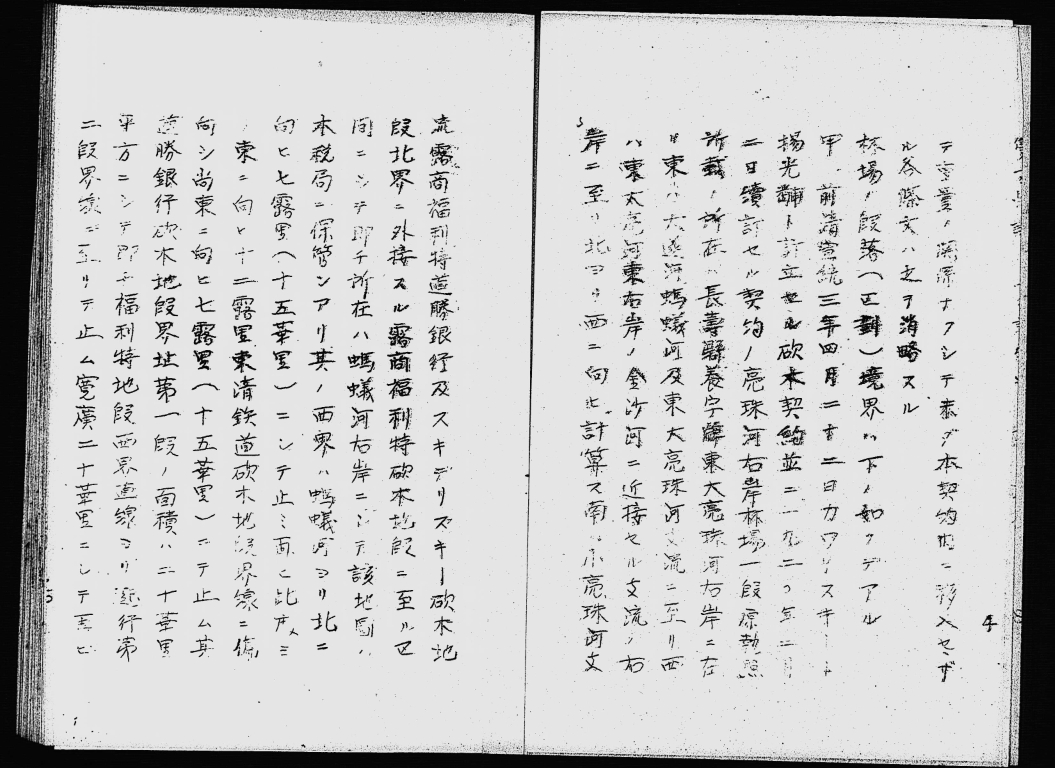 テ営業ノ関係ナクシテ 本契約 ニ移入セザ
ル各條文ハ之ヲ消略スル
林場ノ段落(正割)境界ハ下ノ如クデアル
甲 前清宣統三年四月二十二日カワリスキート
楊光黼ト訂立セル砍木契約並ニ一九二二年二月
二日續訂セル契約ノ亮珠河右岸林場一段原執照
所載ノ所在ハ長壽縣養字牌東大亮珠河右岸ニ在
リ東ハ大連河螞蟻河及東大亮珠河支流ニ至リ西
ハ東大亮河東右岸ノ金沙河ニ近接セル支流ノ右
岸ニ至リ北ヨリ西ニ向ヒ計算ス南ハ小亮珠河支
4
流露商福利特道勝銀行及スキデリスキー砍木地
段北界ニ外接スル露商福利特砍木地段ニ至ル
間ニシテ即チ所在ハ螞蟻河右岸ニシテ該地圖ハ
本税局ニ保管シアリ其ノ西界ハ螞蟻河ヨリ北ニ
向ヒ七露里(十五華里)ニシテ止ミ
東ニ向ヒ十二露里東清鉄道砍木地段界線ニ傍
向シ尚東ニ向ヒ七露里(十五華里)ニテ止ム其
道勝銀行砍木地段界址第一段ノ面積ハ二十華里
平方ニシテ即チ福利特地段西界連線ヨリ 行第
二段界線ニ至リテ止ム寛廣二十華里ニシテ